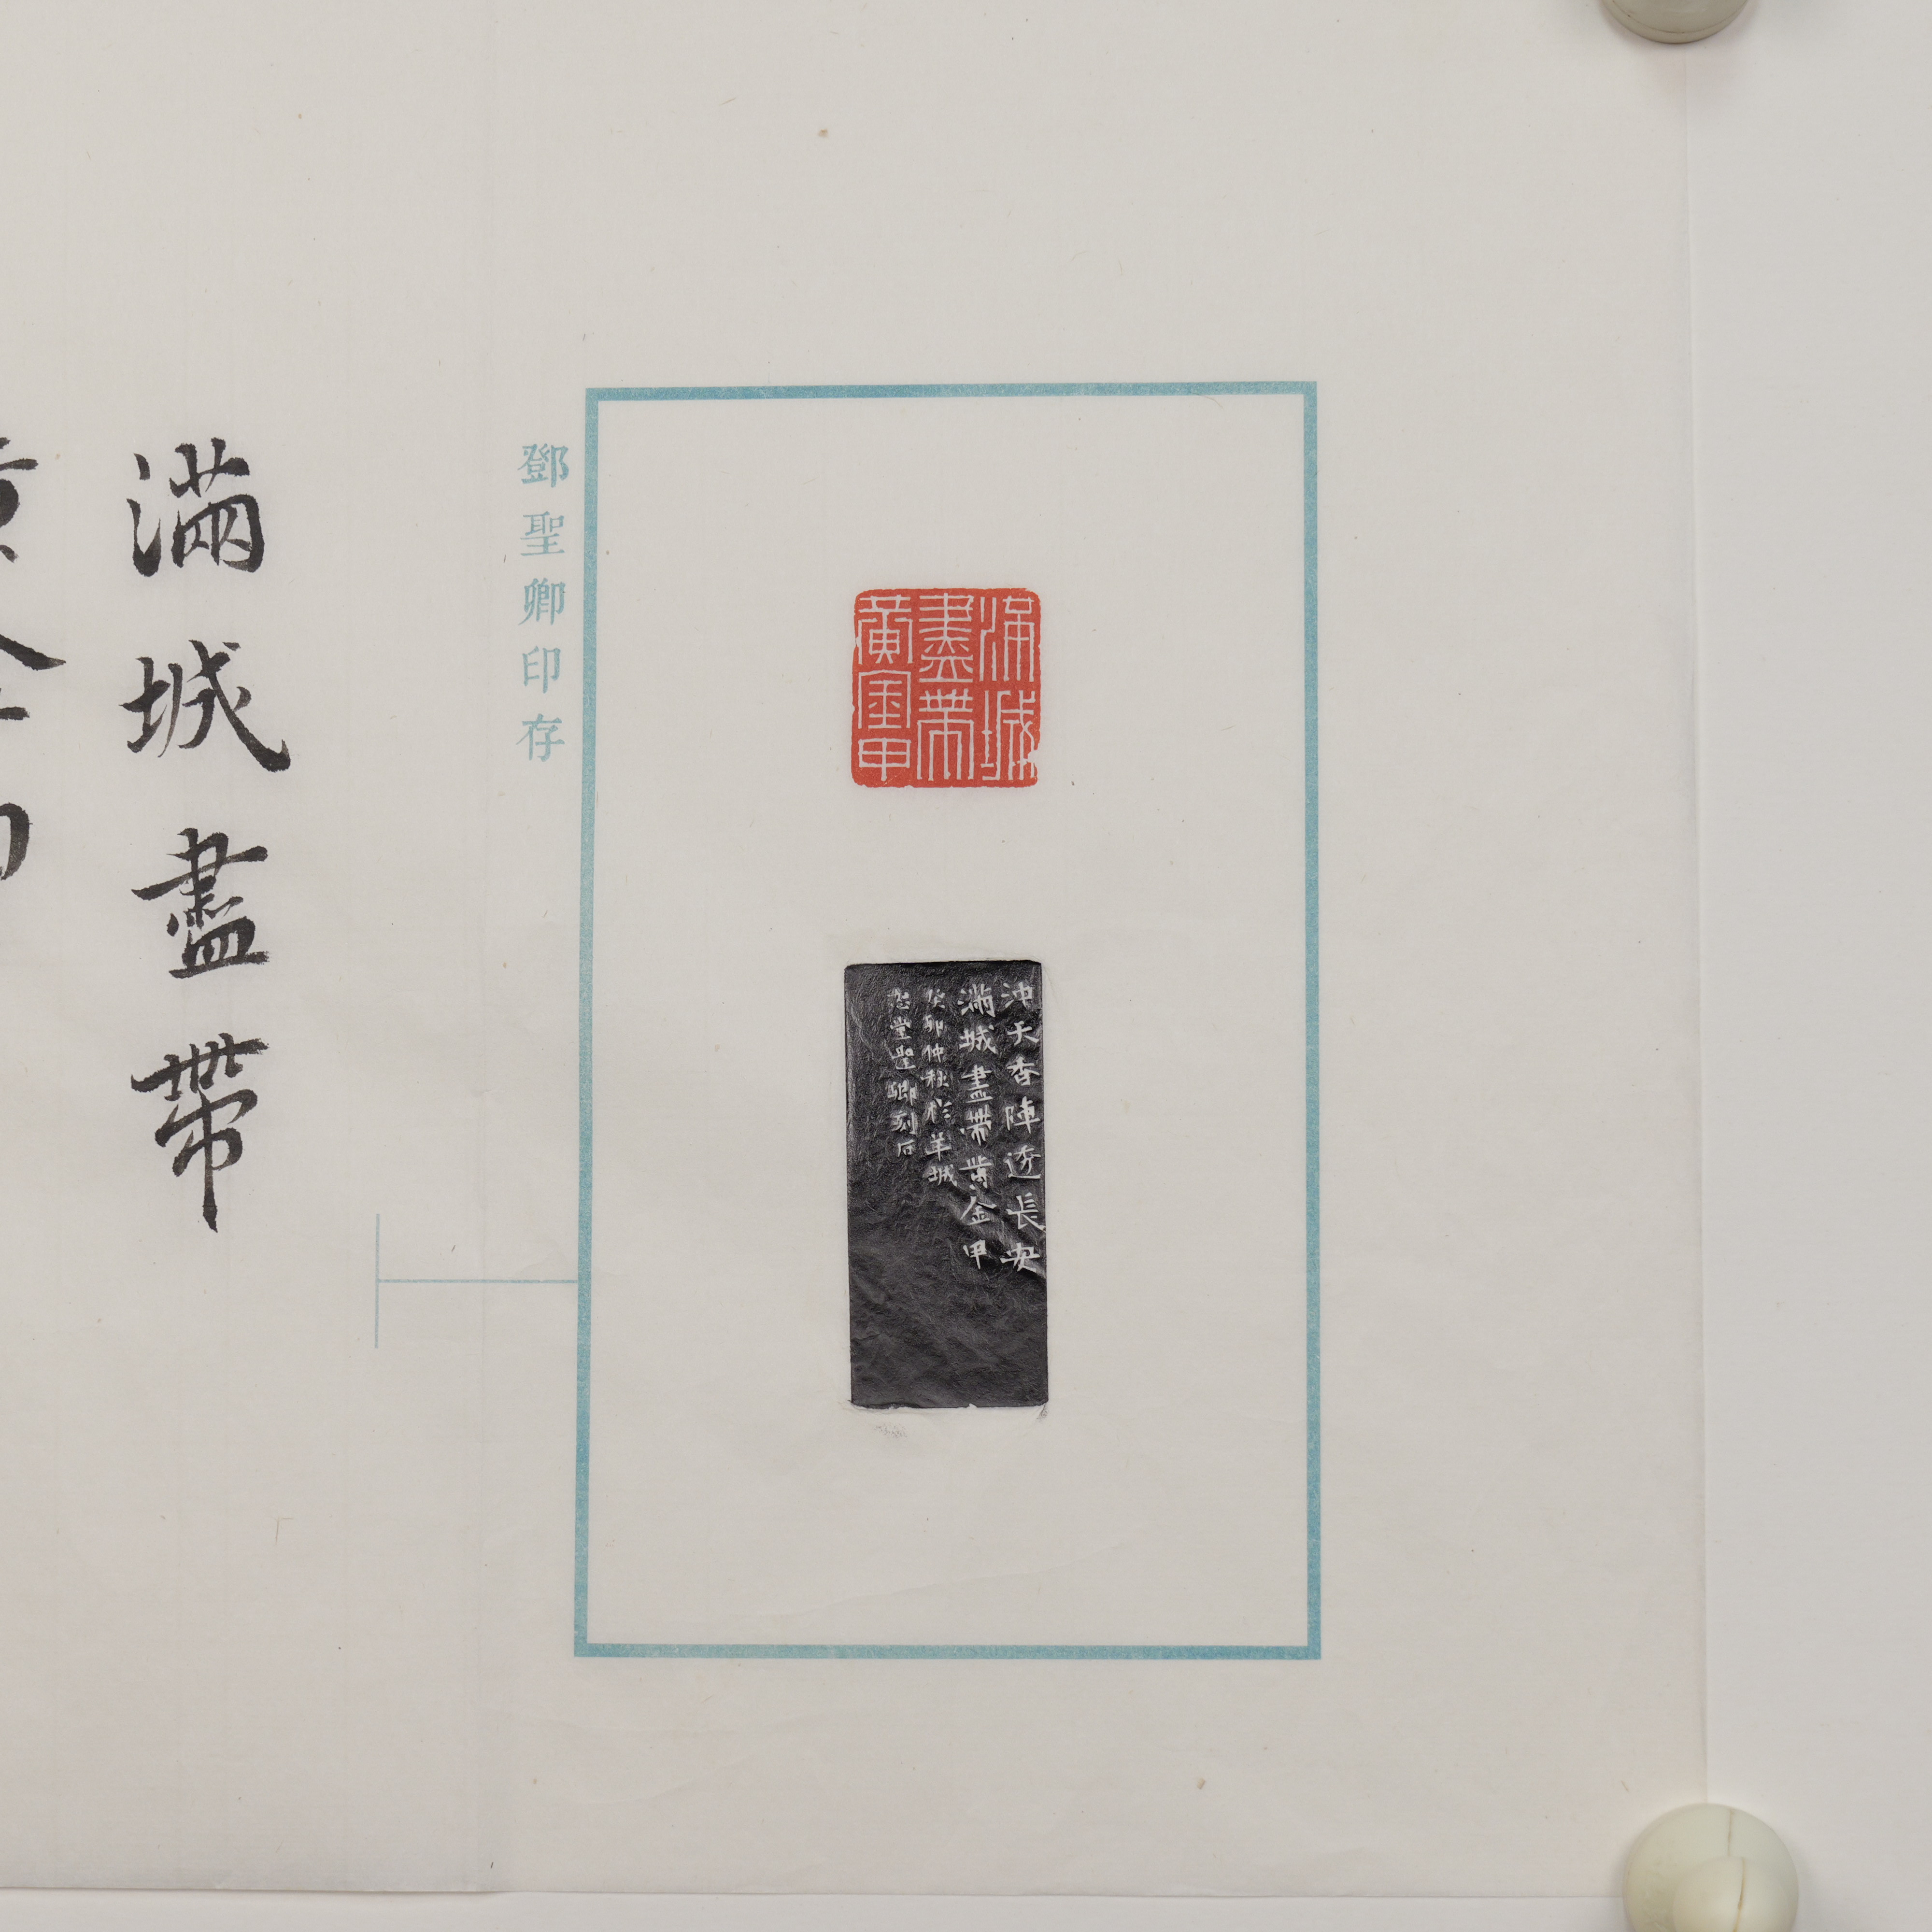 滿城盡帶黃金甲
沖天香陣透長安
滿城盡帶黃金甲
癸卯仲秋於羊城
聖卿刻石
鄧聖卿印存
滿城盡帶